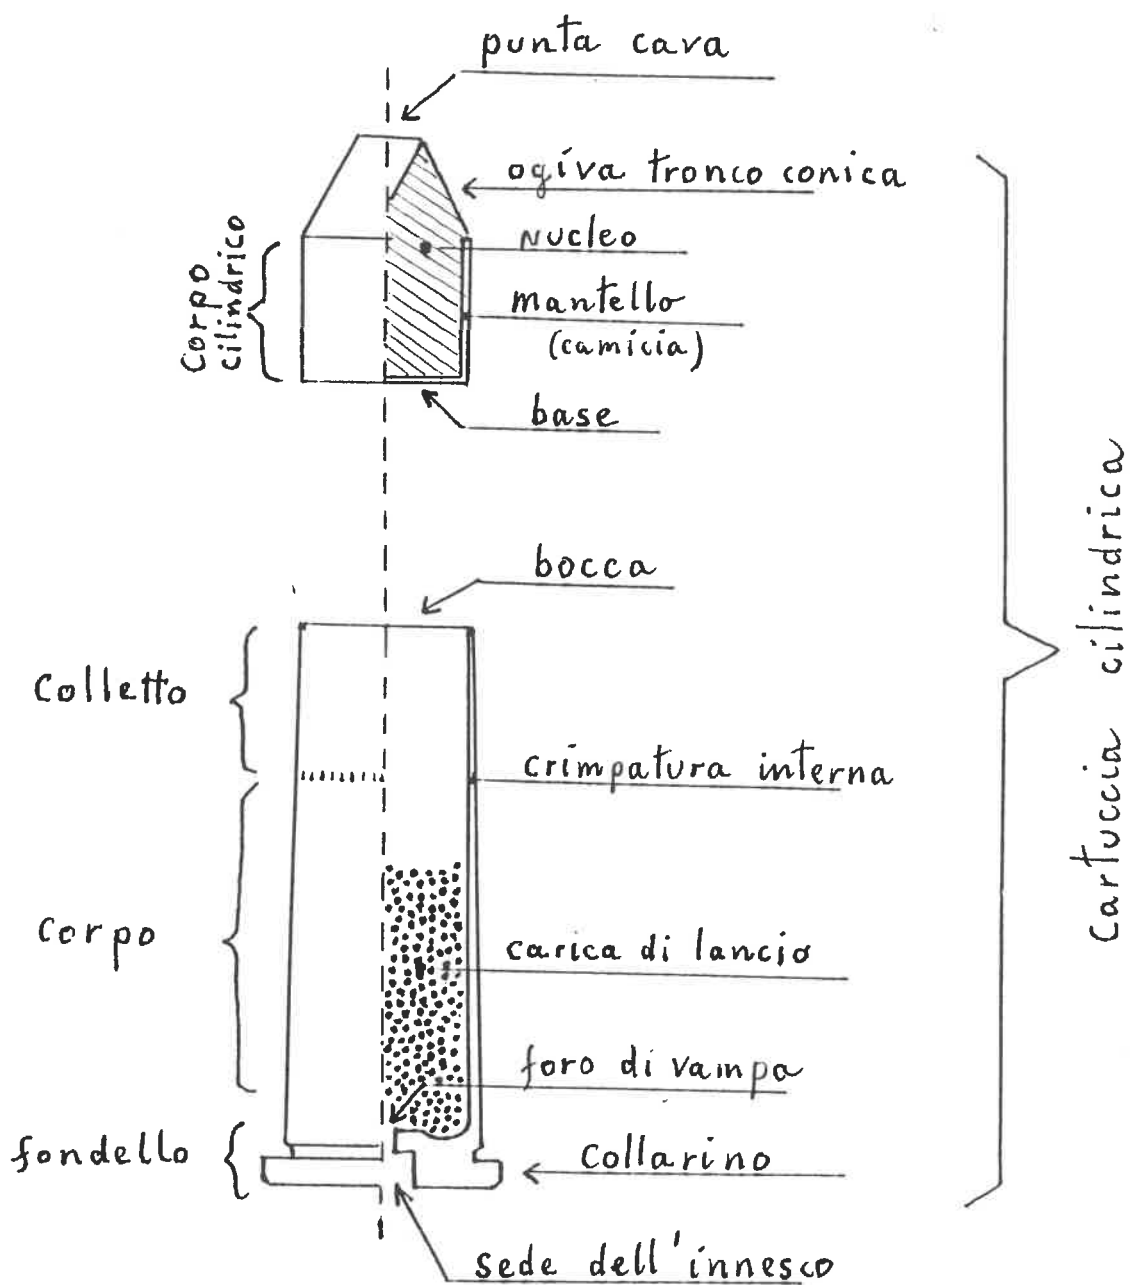 punta cava
ogiva tronco conica
nucleo
mantello
(camicia)
base
corpo
cilindrico
bocca
colletto
crimpatura interna
corpo
carica di lancio
foro di vampa
fondello
collarino
sede dell'innesco
Cartuccia cilindrica